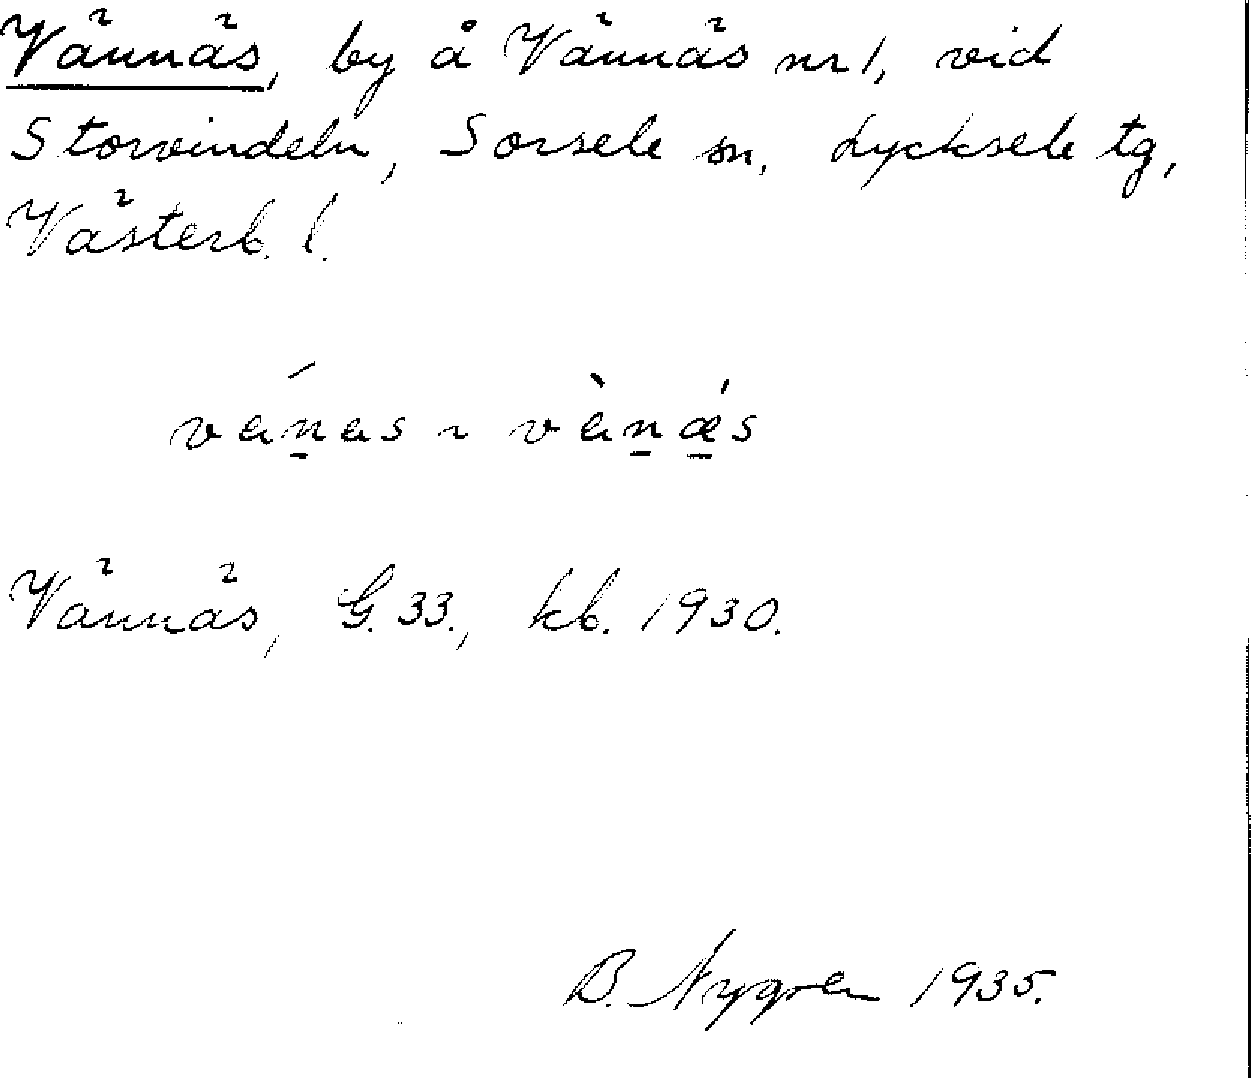 Vännäs, by å Vännäs nr 1, vid
Storvindeln, Sorsele sn, Lycksele tg,
Västerb. l.
Vännäs, G. 33., kb. 1930.
B. Nygren 1935.